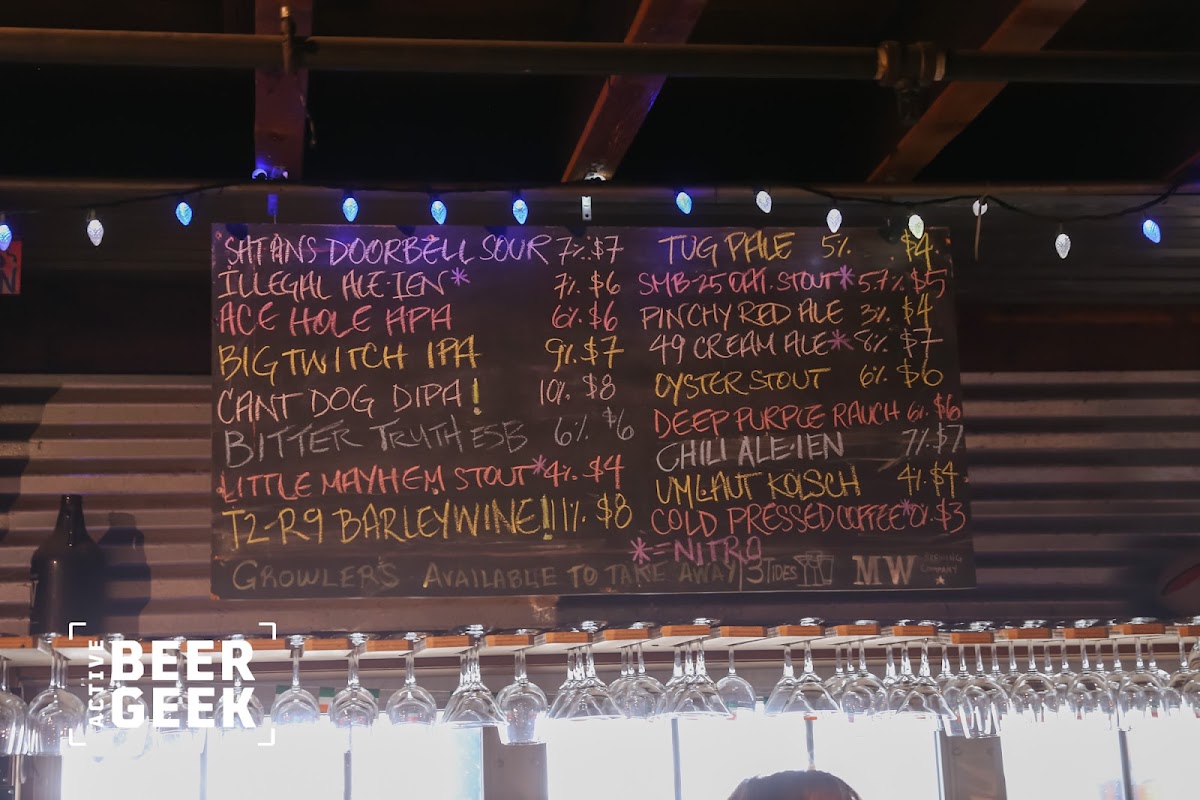 SATANS DOORBELL SOUR 7% $7
ILLEGAL ALE-IEN* 7% $6
ACE HOLE APA 6% $6
BIG TWITCH IPA 9% $7
CANT DOG DIPA! 10% $8
BITTER TRUTH ESB 6% $6
LITTLE MAYHEM STOUT* 4% $4
T2-R9 BARLEYWINE!! 11% $8
TUG PALE 5% $4
SMB-25 OAT. STOUT* 5.7% $5
PINCHY RED ALE 3% $4
49 CREAM ALE* 8% $7
OYSTER STOUT 6% $6
DEEP PURPLE RAUCH 6% $6
CHILI ALE-IEN 7% $7
UMLAUT KOLSCH 4% $4
COLD PRESSED COFFEE* 0% $3
*=NITRO
GROWLERS AVAILABLE TO TAKE AWAY
3 TIDES
MW BREWING COMPANY
ACTIVE
BEER
GEEK
N